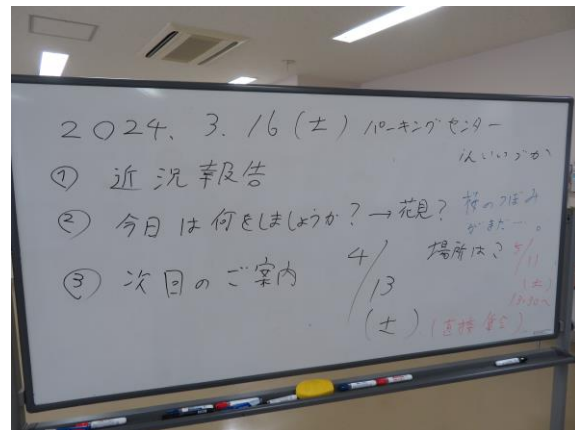 2024. 3. 16(土) パーキングセンター
inいいづか
① 近況報告
② 今日は何をしましょうか? → 花見? 桜のつぼみ
がまだ…。
場所は?
③ 次回のご案内 4/13
(土)
5/11
(土)
(直接集合)